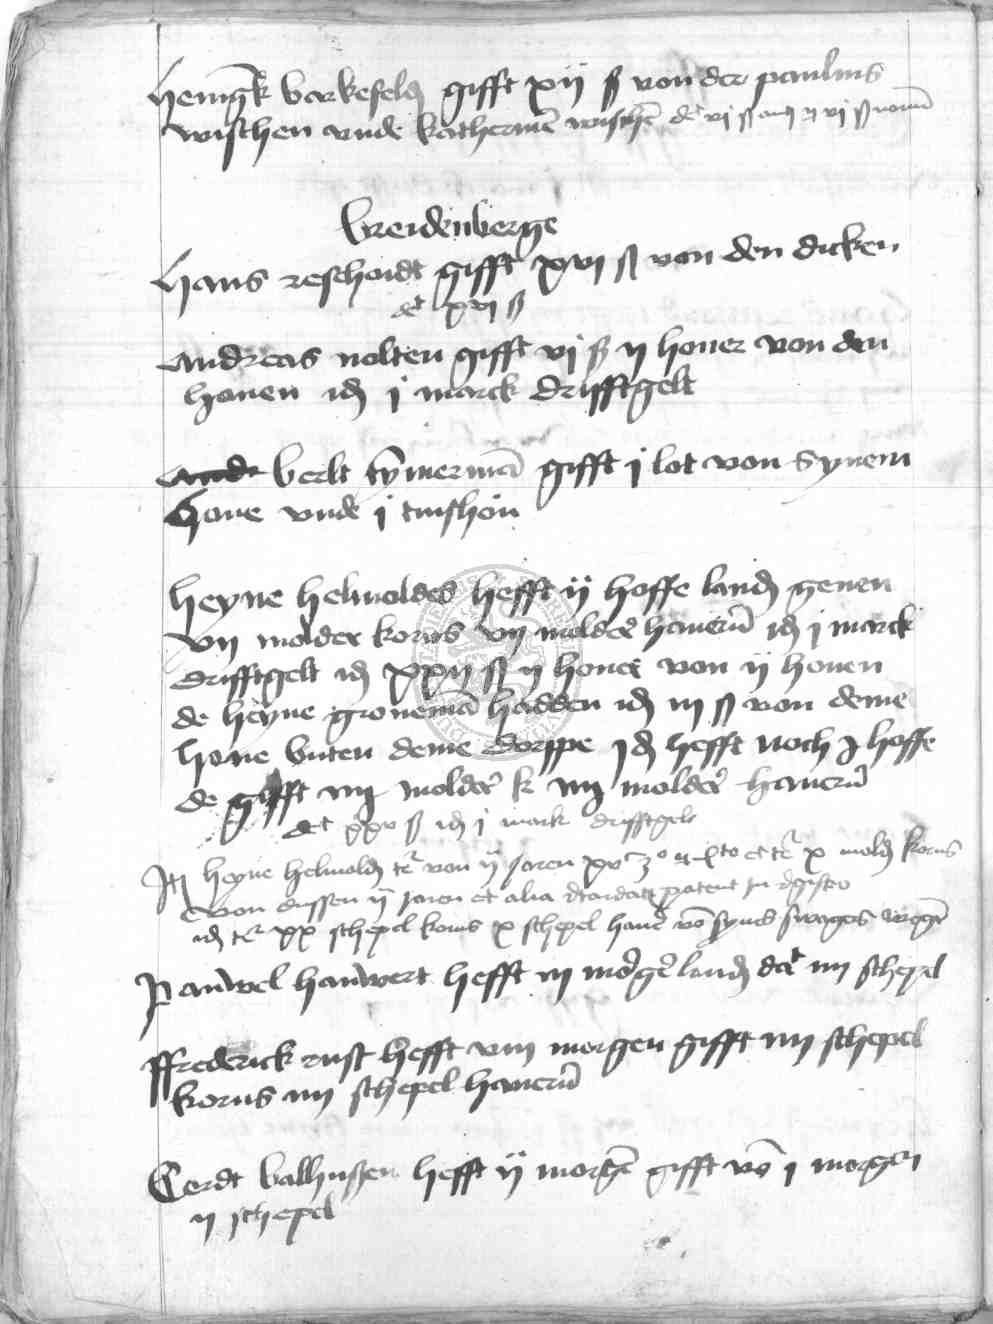 Henigk berkefeld gifft xij ß von der paulins
wischen vnde katherinen wisschen dt vi ß vnd vj ß
breidenberge
Hans reschoidt gifft xvi ß von den dicken
dt xvi ß
Andreas nolten gifft vj ß ij honer von den
houen id j marck drifftgelt
berlt tymerman gifft j lot von synem
Houe vnde j tinshon
Heyne helmoldes hefft ij hoffe land geuen
vij molder korns vij molder hauern id j marck
drifftgelt id xxij ß ij honer von ij houen
de heyne groneman hadden id iij ß von deme
houe buten deme dorppe id hefft noch j hoffe
de gifft iiij molder k iiij molder hauern
dt xxv ß id j mark drifftgelt
It heyne helmold von ij jaren x mold korns
von dussen ij jaren et alia patent in registro
id xx schepel korns x schepel hauer von synes swagers wegen
Pauwel hauwert hefft iij morgen land dat iiij schepel
Ffrederick rust hefft viij morgen gifft iiij schepel
korns iiij schepel hauern
Cerdt balhussen hefft ij morgen gifft von j morgen
ij schepel